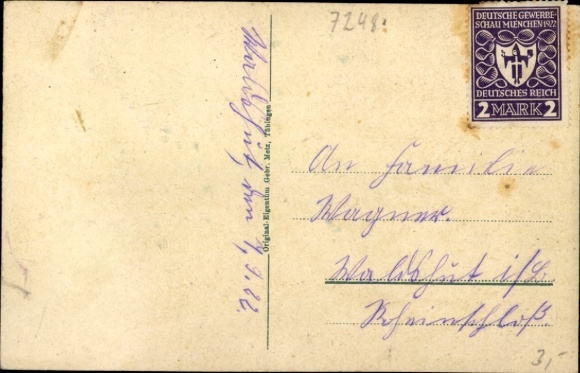 7248.
DEUTSCHE GEWERBE-
SCHAU MUENCHEN 1922
DEUTSCHES REICH
2 MARK 2
Waldshut den 4.9.22.
Original-Eigentum Gebr. Metz, Tübingen
An Familie
Wagner.
Waldshut i/B.
Rheinschloß.
3,-